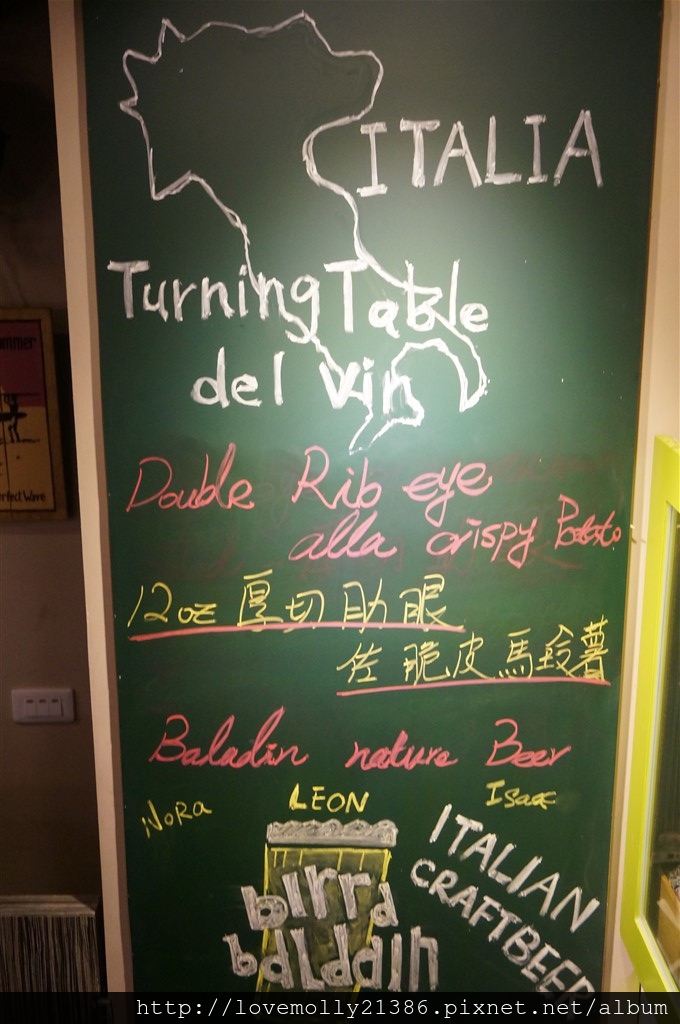 ITALIA
Turning Table
del vin
Double Rib eye
alla crispy Potato
12oz 厚切助眼
佐脆皮馬鈴薯
Baladin nature Beer
Nora LEON Isaac
birra
baladin
ITALIAN
CRAFTBEER
erfect Wave
http://lovemolly21386.pixnet.net/album